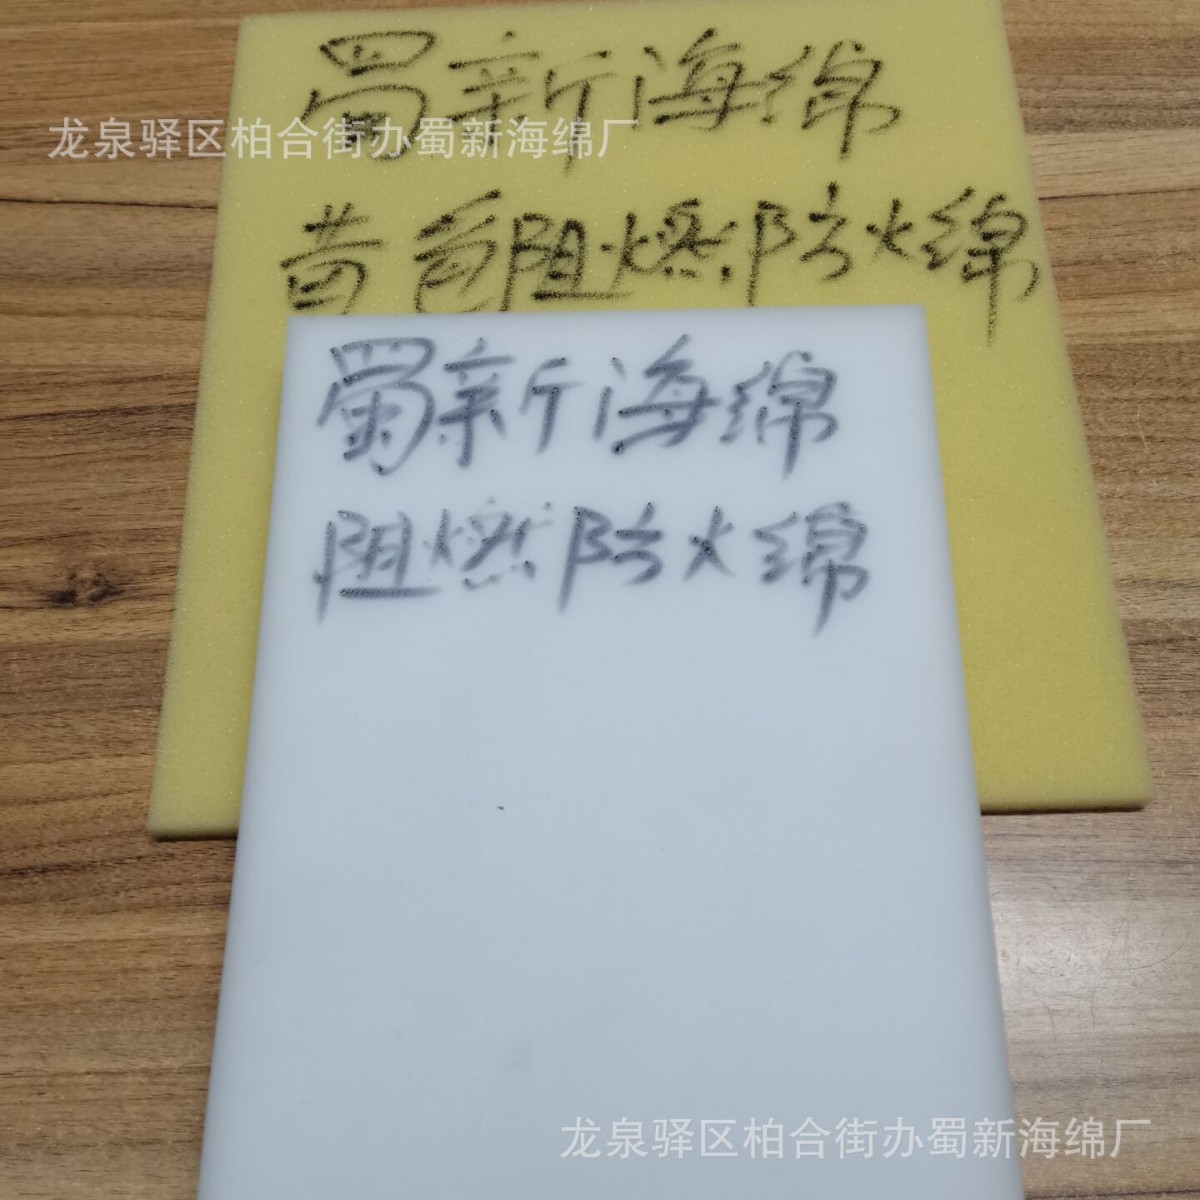 蜀新海绵
龙泉驿区柏合街办蜀新海绵厂
黄色阻燃防火绵
蜀新海绵
阻燃防火绵
龙泉驿区柏合街办蜀新海绵厂